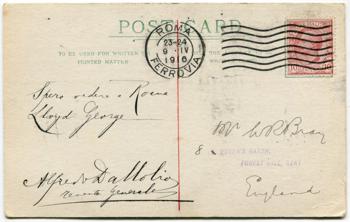 POST CARD
TO BE USED FOR WRITTEN
PRINTED MATTER
ROMA
23-24
9 IV
FERROVIA
Spero vedere a Roma
Lloyd George
Alfredo Dallolio
tenente Generale
Mr W R Bray
8
FOREST HILL,
England